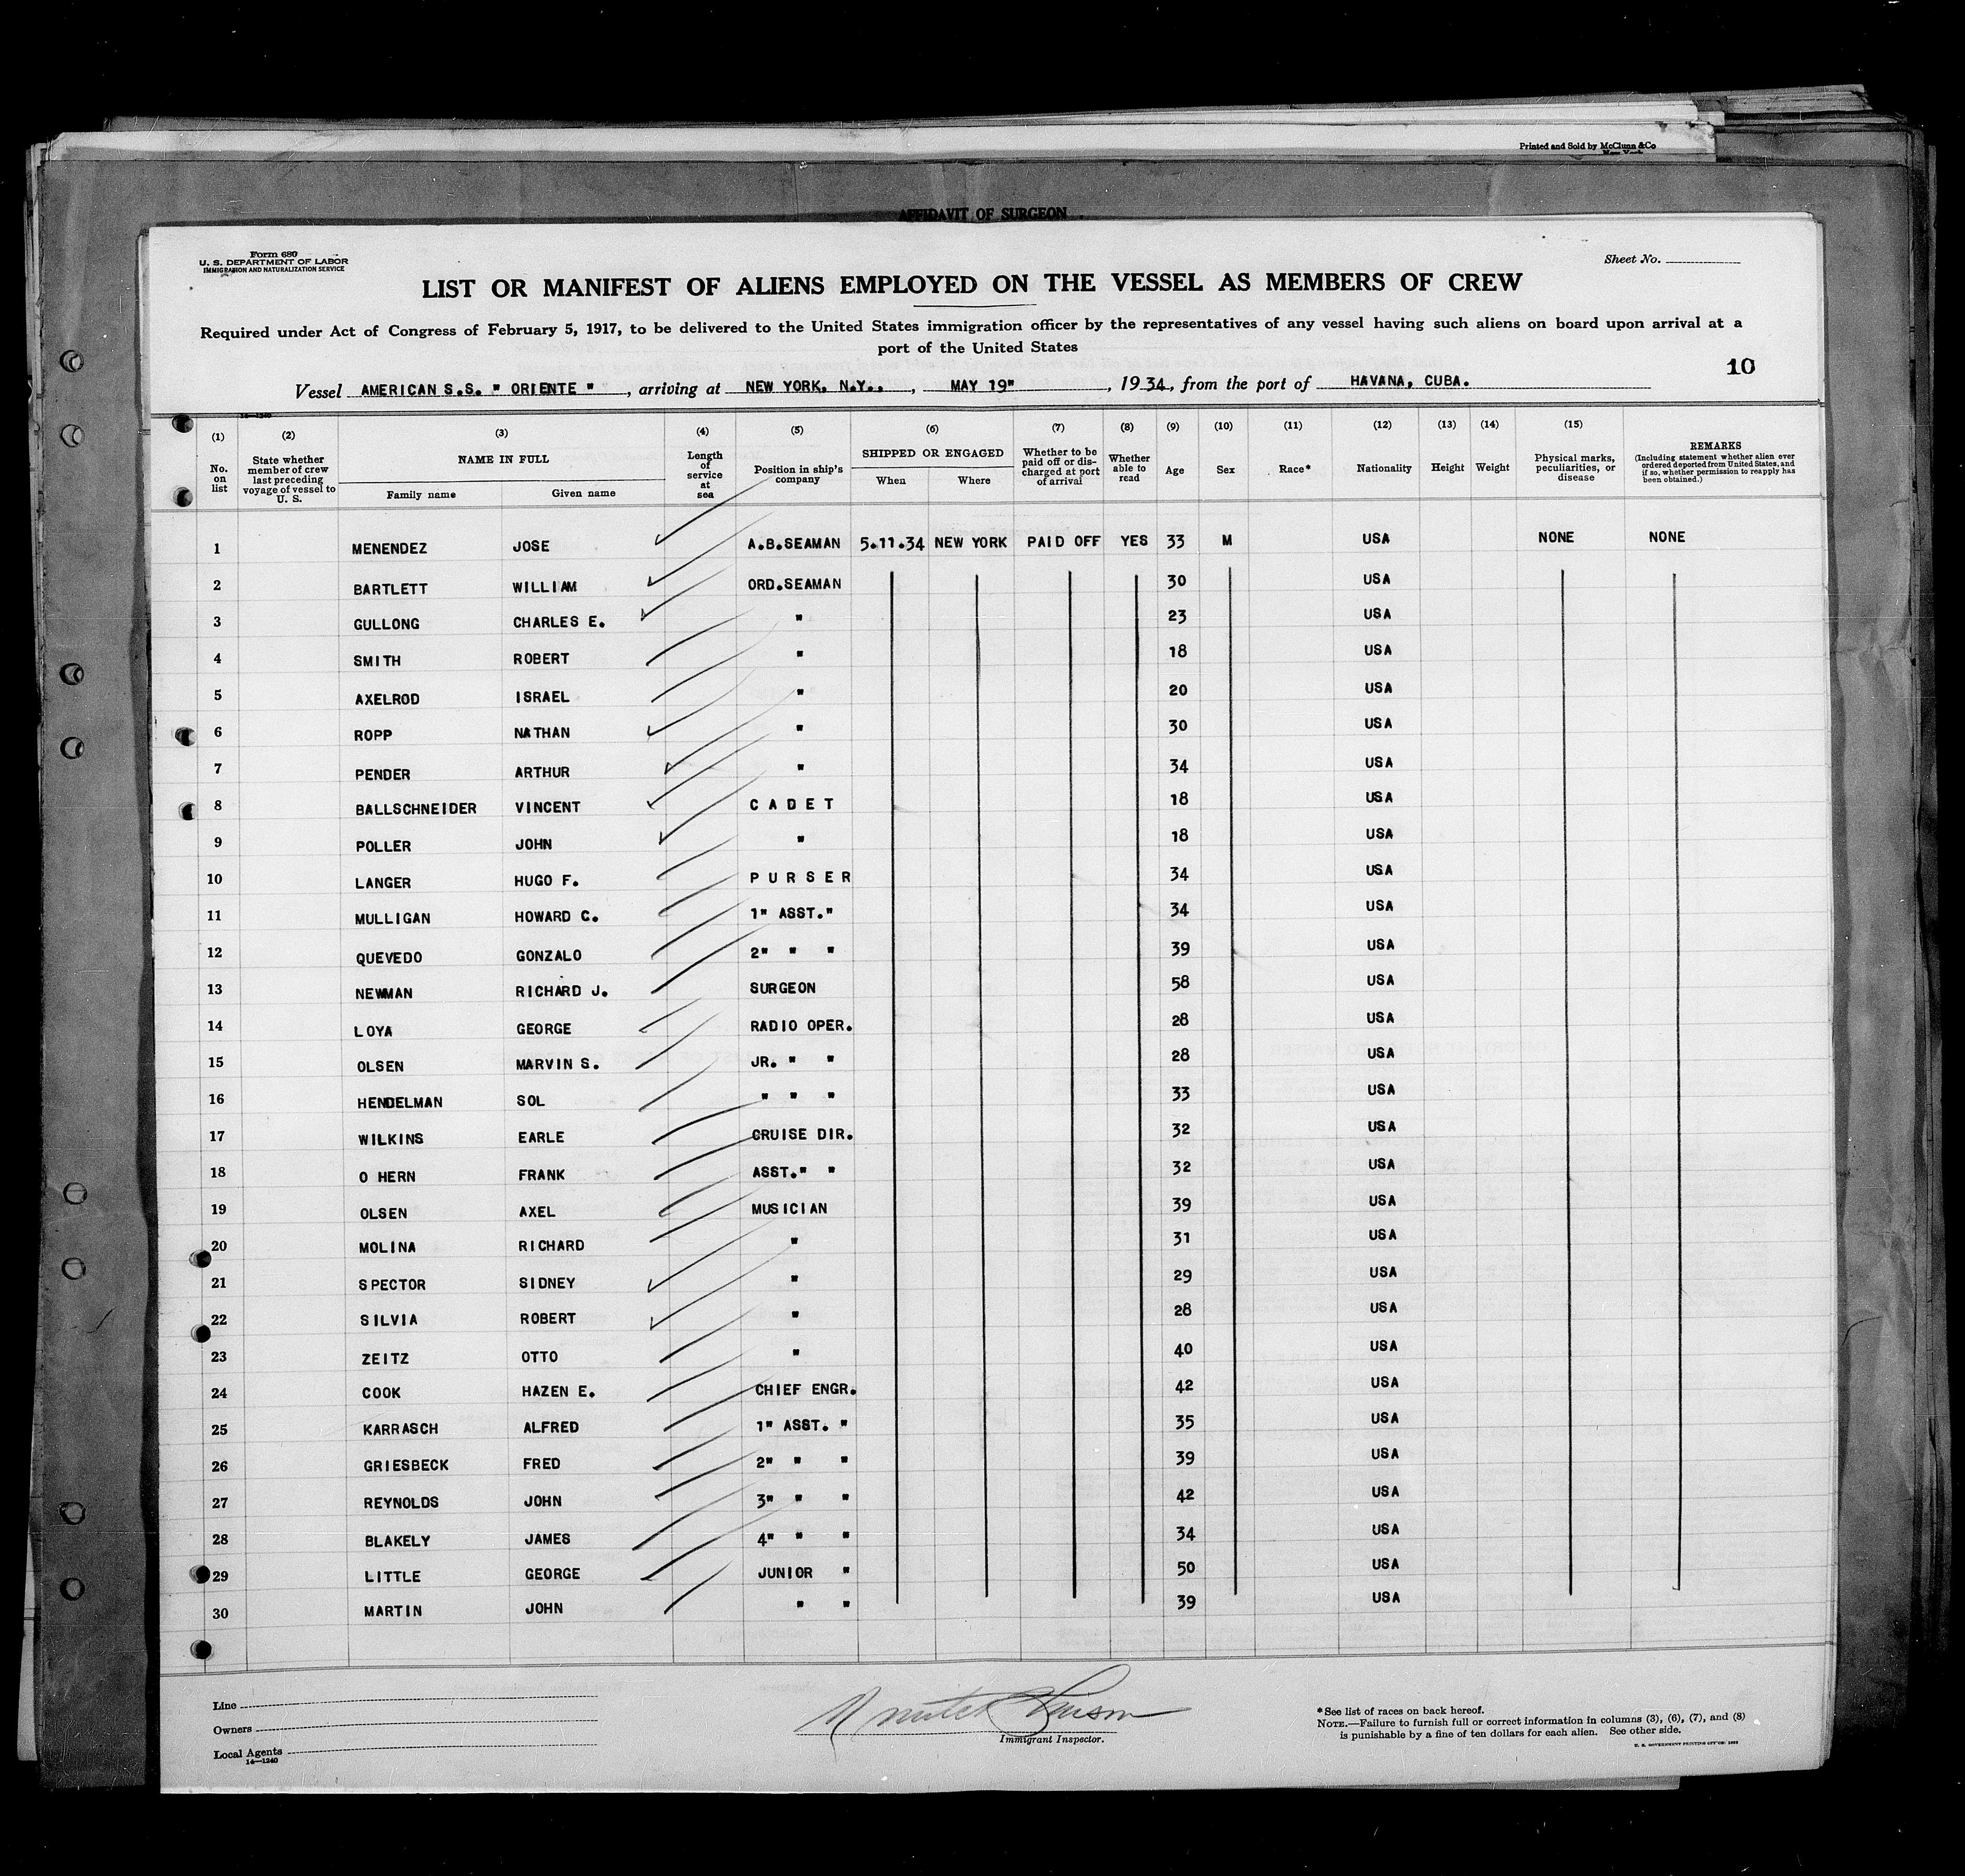 Printed and Sold by McClunn &Co
New York
AFFIDAVIT OF SURGEON
Form 680
U. S. DEPARTMENT OF LABOR
IMMIGRATION AND NATURALIZATION SERVICE
Sheet No.
LIST OR MANIFEST OF ALIENS EMPLOYED ON THE VESSEL AS MEMBERS OF CREW
Required under Act of Congress of February 5, 1917, to be delivered to the United States immigration officer by the representatives of any vessel having such aliens on board upon arrival at a
port of the United States
10
Vessel AMERICAN S.S. " ORIENTE ", arriving at NEW YORK, N.Y., MAY 19", 1934, from the port of HAVANA, CUBA.
14-1240
(1) (2) (3) (4) (5) (6) (7) (8) (9) (10) (11) (12) (13) (14) (15)
No. on list
State whether member of crew last preceding voyage of vessel to U. S.
NAME IN FULL
Family name Given name
Length of service at sea
Position in ship's company
SHIPPED OR ENGAGED
When Where
Whether to be paid off or discharged at port of arrival
Whether able to read
Age
Sex
Race*
Nationality
Height
Weight
Physical marks, peculiarities, or disease
REMARKS
(Including statement whether alien ever ordered deported from United States, and if so, whether permission to reapply has been obtained.)
1 MENENDEZ JOSE A.B.SEAMAN 5.11.34 NEW YORK PAID OFF YES 33 M USA NONE NONE
2 BARTLETT WILLIAM ORD.SEAMAN 30 USA
3 GULLONG CHARLES E. " 23 USA
4 SMITH ROBERT " 18 USA
5 AXELROD ISRAEL " 20 USA
6 ROPP NATHAN " 30 USA
7 PENDER ARTHUR " 34 USA
8 BALLSCHNEIDER VINCENT C A D E T 18 USA
9 POLLER JOHN " 18 USA
10 LANGER HUGO F. P U R S E R 34 USA
11 MULLIGAN HOWARD C. 1" ASST." 34 USA
12 QUEVEDO GONZALO 2" " " 39 USA
13 NEWMAN RICHARD J. SURGEON 58 USA
14 LOYA GEORGE RADIO OPER. 28 USA
15 OLSEN MARVIN S. JR. " " 28 USA
16 HENDELMAN SOL " " " 33 USA
17 WILKINS EARLE CRUISE DIR. 32 USA
18 O HERN FRANK ASST." " 32 USA
19 OLSEN AXEL MUSICIAN 39 USA
20 MOLINA RICHARD " 31 USA
21 SPECTOR SIDNEY " 29 USA
22 SILVIA ROBERT " 28 USA
23 ZEITZ OTTO " 40 USA
24 COOK HAZEN E. CHIEF ENGR. 42 USA
25 KARRASCH ALFRED 1" ASST. " 35 USA
26 GRIESBECK FRED 2" " " 39 USA
27 REYNOLDS JOHN 3" " " 42 USA
28 BLAKELY JAMES 4" " " 34 USA
29 LITTLE GEORGE JUNIOR " 50 USA
30 MARTIN JOHN " " 39 USA
Line
Owners
Local Agents
14-1240
Immigrant Inspector.
*See list of races on back hereof.
NOTE.—Failure to furnish full or correct information in columns (3), (6), (7), and (8)
is punishable by a fine of ten dollars for each alien. See other side.
U. S. GOVERNMENT PRINTING OFFICE: